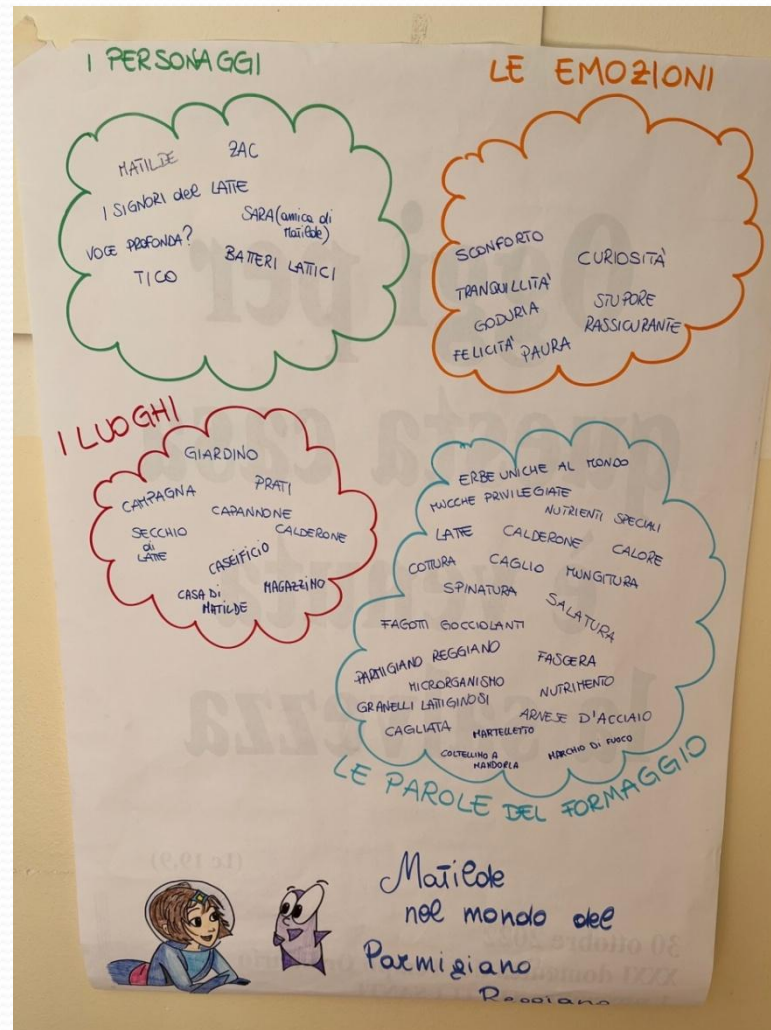 I PERSONAGGI
MATILDE ZAC
I SIGNORI del LATTE
SARA (amica di
Matilde)
VOCE PROFONDA?
BATTERI LATTICI
TICO
LE EMOZIONI
SCONFORTO
CURIOSITÀ
TRANQUILLITA'
STUPORE
GODURIA
RASSICURANTE
FELICITA' PAURA
I LUOGHI
GIARDINO
CAMPAGNA PRATI
CAPANNONE
SECCHIO
di
LATTE
CALDERONE
CASEIFICIO
CASA DI
MATILDE
MAGAZZINO
ERBE UNICHE AL MONDO
MUCCHE PRIVILEGIATE
NUTRIENTI SPECIALI
LATTE CALDERONE CALORE
COTTURA CAGLIO MUNGITURA
SPINATURA
SALATURA
FAGOTTI GOCCIOLANTI
PARMIGIANO REGGIANO
FASCERA
MICRORGANISMO
NUTRIMENTO
GRANELLI LATTIGINOSI
ARNESE D'ACCIAIO
CAGLIATA MARTELLETTO
COLTELLINO A
MANDORLA
MARCHIO DI FUOCO
LE PAROLE DEL FORMAGGIO
Matilde
nel mondo del
Parmigiano
Reggiano
Oggi per
questa casa
è venuta
la salvezza
(Lc 19,9)
30 ottobre 2022